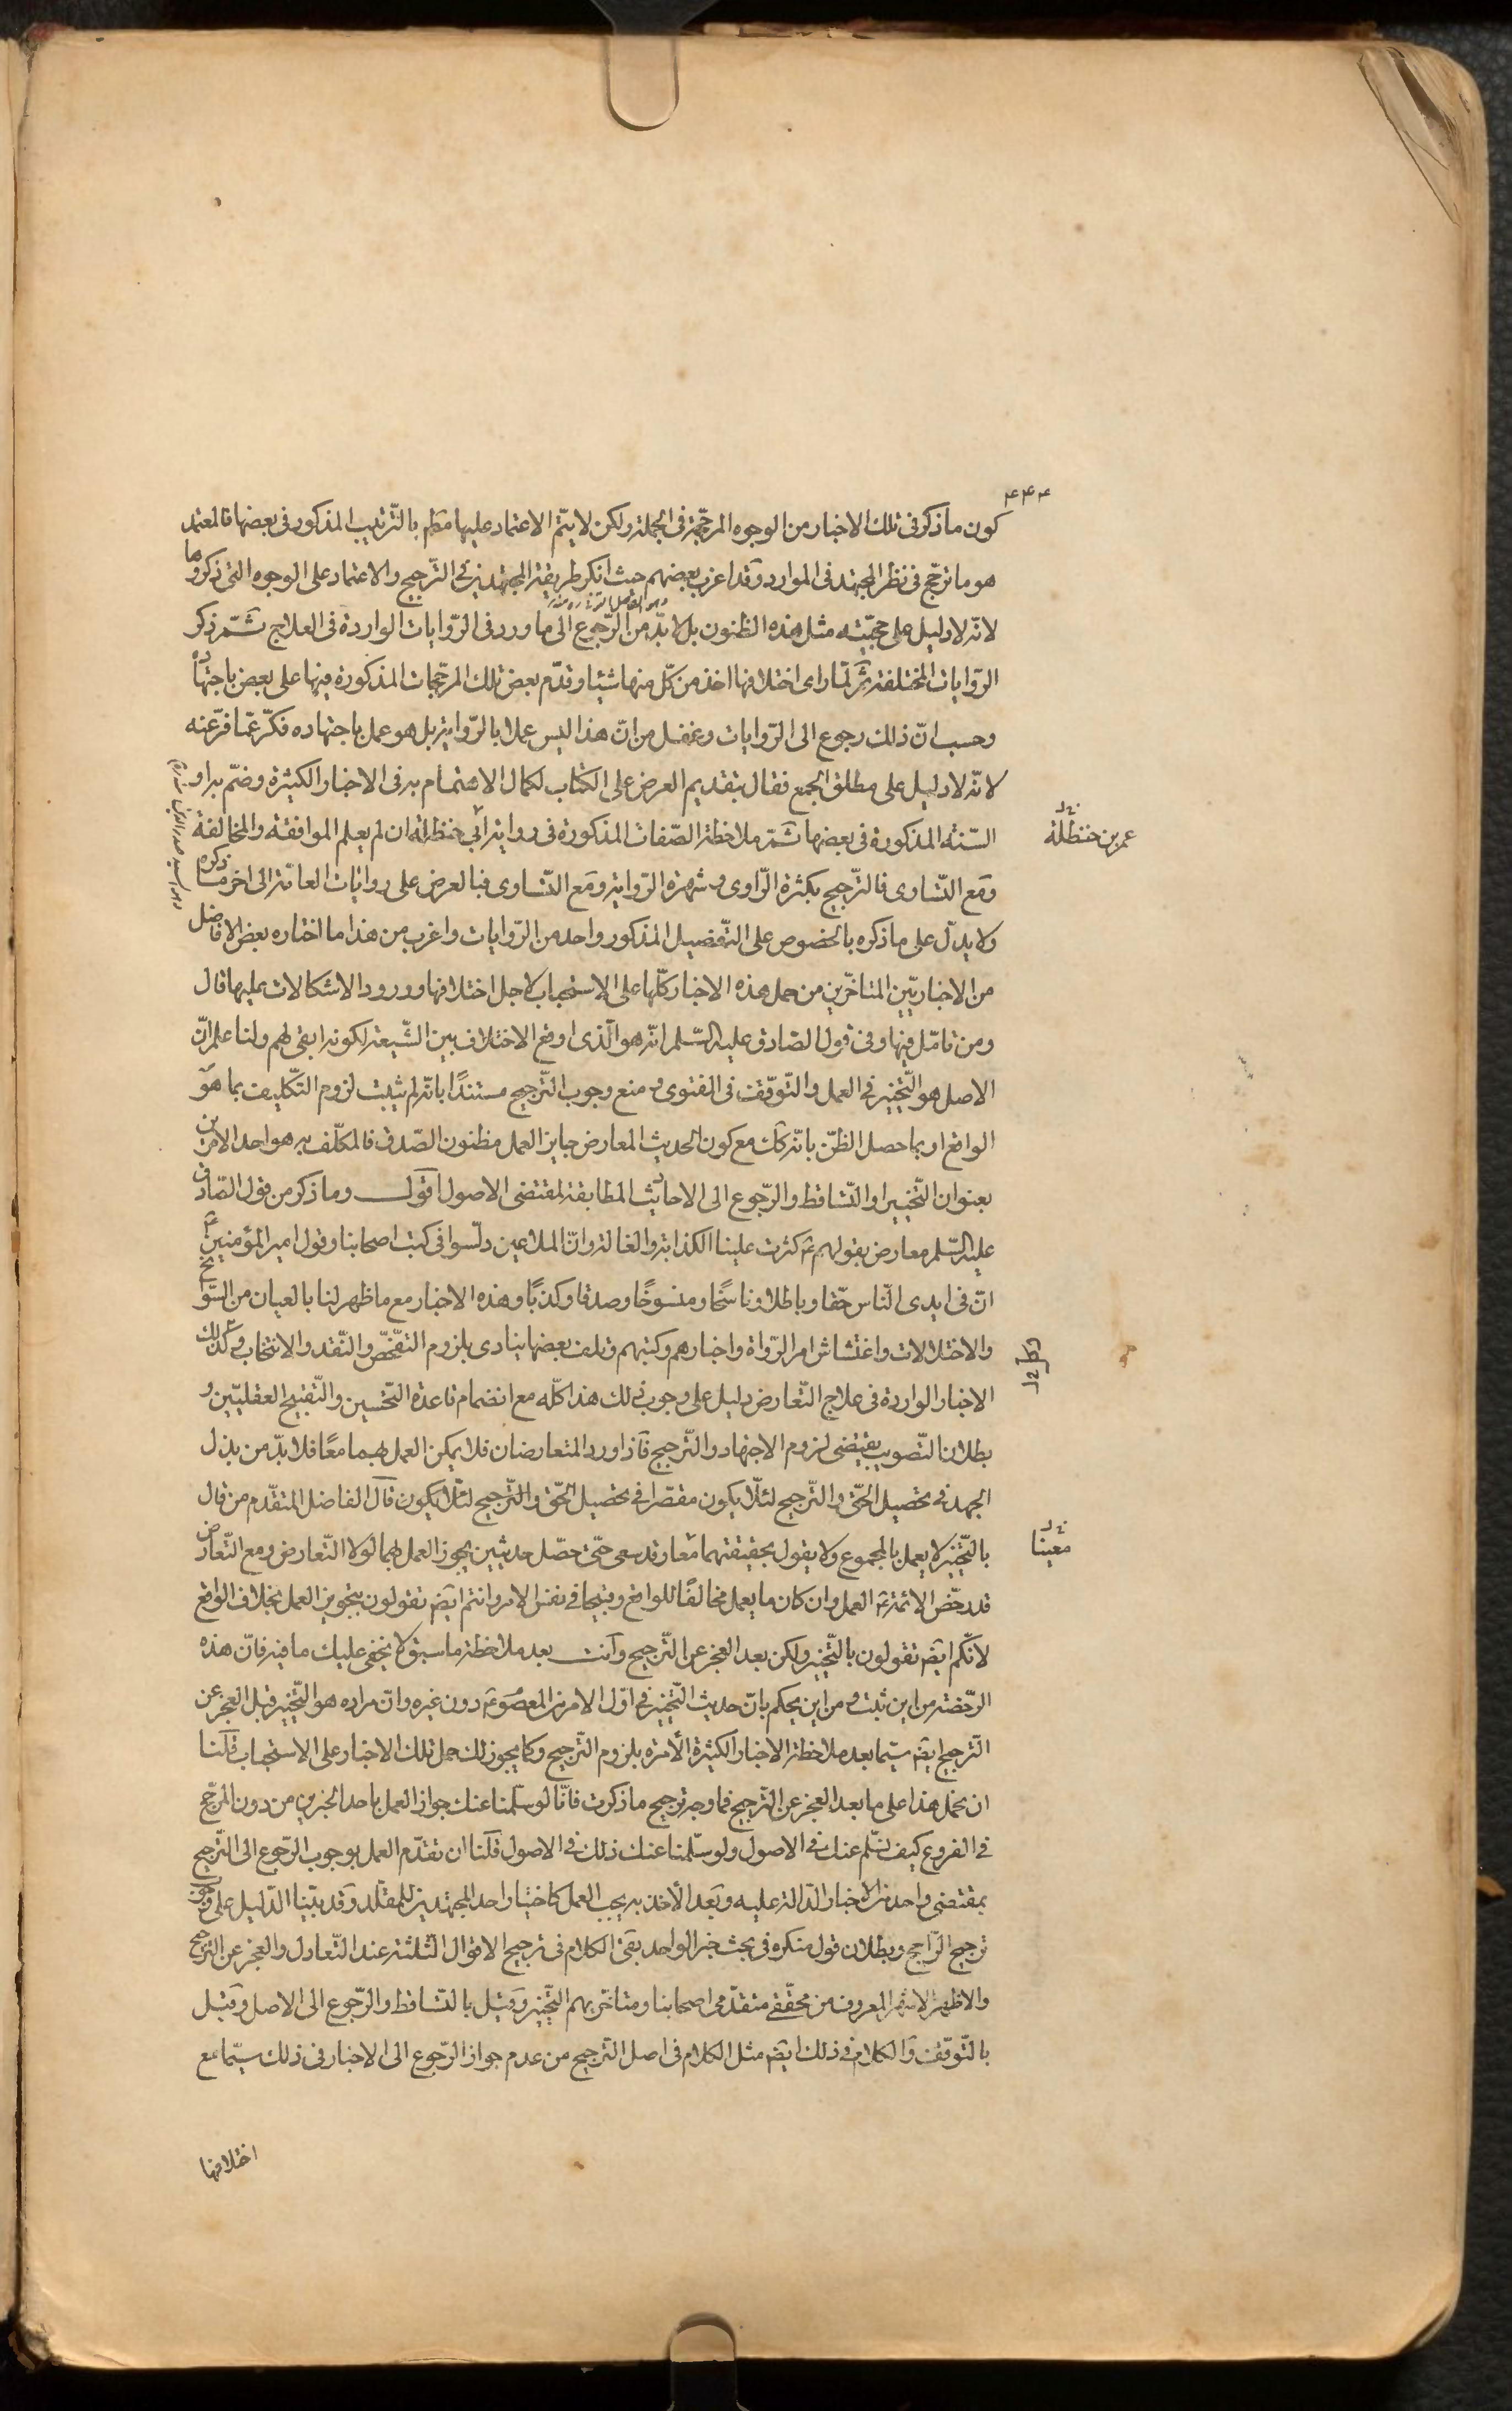 ۴۴۴
كون ما ذكر فى تلك الاخبار من الوجوه المرجّحة فى الجملة ولكن لا يتمّ الاعتماد عليها مط بالترتيب المذكور فى بعضها فالمعتمد
هو ما ترجّح فى نظر المجتهد فى الموارد وقد اغرب بعضهم حيث انكر طريقة المجتهدين فى الترجيح والاعتماد على الوجوه التى ذكروها
لانّه لا دليل على حجّيّته مثل هذه الظنون بل لا بدّ من الرّجوع الى ما ورد فى الرّوايات الواردة فى العلاج ثمّ ذكر
الرّوايات المختلفة ثمّ لمّا راى اختلافها اخذ من كلّ منها شيئا وقدّم بعض تلك المرجّحات المذكورة فيها على بعض باجتهاده
وحسب انّ ذلك رجوع الى الرّوايات وغفل من انّ هذا ليس عملا بالرّواية بل هو عمل باجتهاده فكرّ عمّا فرّ عنه
لانّه لا دليل على مطلق الجمع فقال بتقديم العرض على الكتاب لكمال الاهتمام به فى الاخبار الكثيرة وضمّ به او
السّنة المذكورة فى بعضها ثمّ ملاحظة الصّفات المذكورة فى رواية ابى حنظلة ان لم يعلم الموافقة والمخالفة
عمر بن حنظلة
ومع التّساوى فالتّرجيح بكثرة الرّاوى وشهرة الرّواية ومع التّساوى فبالعرض على روايات العامّة الى اخر ما ذكره
ولا يدلّ على ما ذكره بالخصوص على التّفصيل المذكور واحد من الرّوايات واغرب من هذا ما اختاره بعض الافاضل
من الاخباريّين المتاخّرين من حمل هذه الاخبار كلّها على الاستحباب لاجل اختلافها وورود الاشكالات عليها قال
ومن تامّل فيها وفى قول الصّادق عليه السّلم انّه هو الّذى اوقع الاختلاف بين الشّيعة لكونه ابقى لهم ولنا علم انّ
الاصل هو التّخيير فى العمل والتّوقّف فى الفتوى ومنع وجوب التّرجيح مستندًا بانّه لم يثبت لزوم التّكليف بما هو
الواقع او بما حصل الظنّ بانّه كك مع كون الحديث المعارض جايز العمل مظنون الصّدق فالمكلّف به هو احد الامرين
بعنوان التّخيير او التّساقط والرّجوع الى الاحاديث المطابقة لمقتضى الاصول اقول وما ذكر من قول الصّادق
عليه السّلم معارض بقولهم ع كثرت علينا الكذّابة والغالة وانّ الملاعين دلّسوا فى كتب اصحابنا وقول امير المؤمنين ع
انّ فى ايدى النّاس حقّا وباطلا وناسخًا ومنسوخًا وصدقا وكذبًا وهذه الاخبار مع ما ظهر لنا بالعيان من السّوانح
والاختلالات واغتشاش امر الرّواة واخبارهم وكتبهم وتلف بعضها ينادى بلزوم التفحّص والنّقد والانتخاب وكذلك
الاخبار الواردة فى علاج التّعارض دليل على وجوب ذلك هذا كلّه مع انضمام قاعدة التّحسين والتّقبيح العقليّين و
بطلان التّصويب يقتضى لزوم الاجتهاد والتّرجيح فاذا ورد المتعارضان فلا يمكن العمل بهما معًا فلا بدّ من بذل
الجهد فى تحصيل الحقّ والتّرجيح لئلّا يكون مقصّرا فى تحصيل الحقّ والتّرجيح لئلّا يكون قال الفاضل المتقدّم من قال
بالتّخيير لا يعمل بالمجموع ولا يقول بحقيقتهما معا وقد سعى حتّى حصّل حديثين يجوز العمل بهما لولا التّعارض ومع التّعارض
معينا
قد رخّص الائمّة ع العمل وان كان ما يعمل مخالفًا للواقع وقبيحا فى نفس الامر وانتم ايضا تقولون بتجويز العمل بخلاف الواقع
لانّكم ايضا تقولون بالتّخيير ولكن بعد العجز عن التّرجيح وانت بعد ملاحظة ما سبق لا يخفى عليك ما فيه فانّ هذه
الرّخصة من اين ثبت ومن اين يحكم بانّ حديث التّخيير فى اوّل الامر من المعصوم ع دون غيره وانّ مراده هو التّخيير قبل العجز عن
التّرجيح ايضا سيّما بعد ملاحظة الاخبار الكثيرة الآمرة بلزوم التّرجيح وكما يجوز لك حمل تلك الاخبار على الاستحباب فلنا
ان نحمل هذا على ما بعد العجز عن التّرجيح فما وجه ترجيح ما ذكرت فانّا لو سلّمنا عنك جواز العمل باحد الخبرين من دون المرجّح
فى الفروع كيف نسلّم عنك فى الاصول ولو سلّمنا عنك ذلك فى الاصول فلنا ان نقدّم العمل بوجوب الرّجوع الى التّرجيح
بمقتضى واحد من الاخبار الدّالة عليه وبعد الأخذ به يجب العمل كاختيار احد المجتهدين للمقلّد وقد بيّنا الدّليل على وجوب
ترجيح الرّاجح وبطلان قول منكره فى بحث خبر الواحد بقى الكلام فى ترجيح الاقوال الثّلثة عند التّعادل والعجز عن التّرجيح
والاظهر الاشهر المعروف من محقّقى متقدّمى اصحابنا ومتاخّريهم التّخيير وقيل بالتّساقط والرّجوع الى الاصل وقيل
بالتّوقّف والكلام فى ذلك ايضا مثل الكلام فى اصل التّرجيح من عدم جواز الرّجوع الى الاخبار فى ذلك سيّما مع
اختلافها